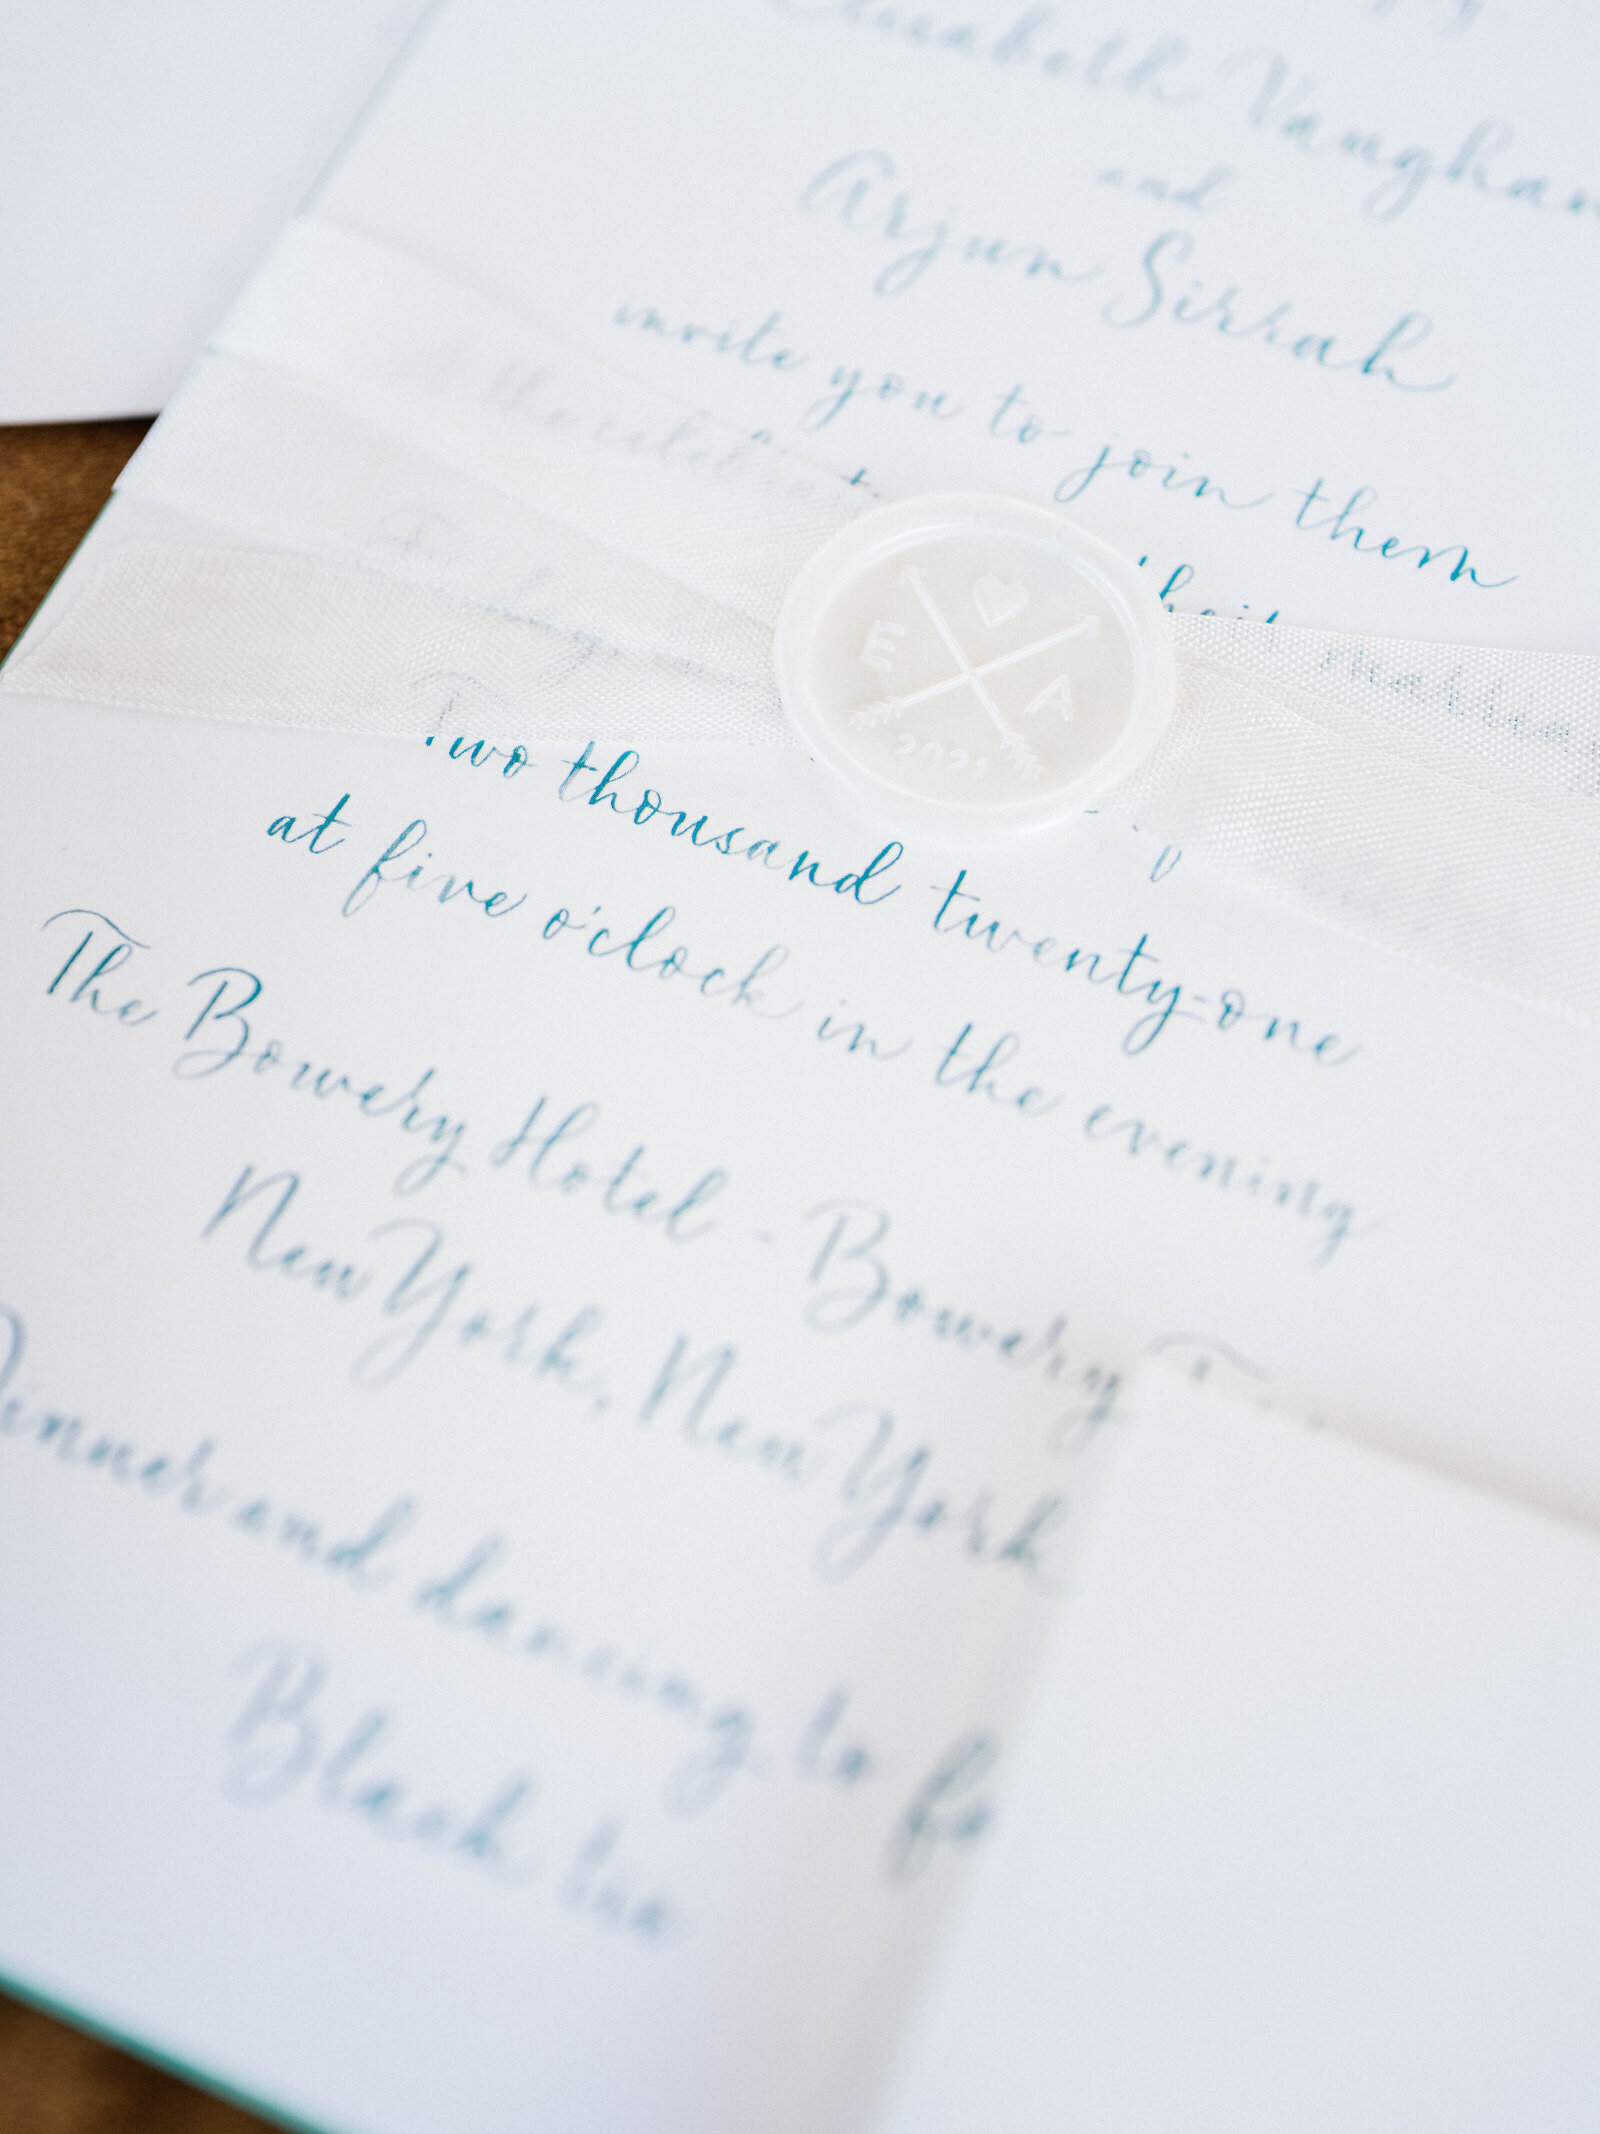 Elisabeth Vaughan
and
Arjun Sirrah
invite you to join them
the celebration
E A
2021
Two thousand twenty-one
at five o'clock in the evening
The Bowery Hotel - Bowery
New York, New York
Dinner and dancing to
Black tie